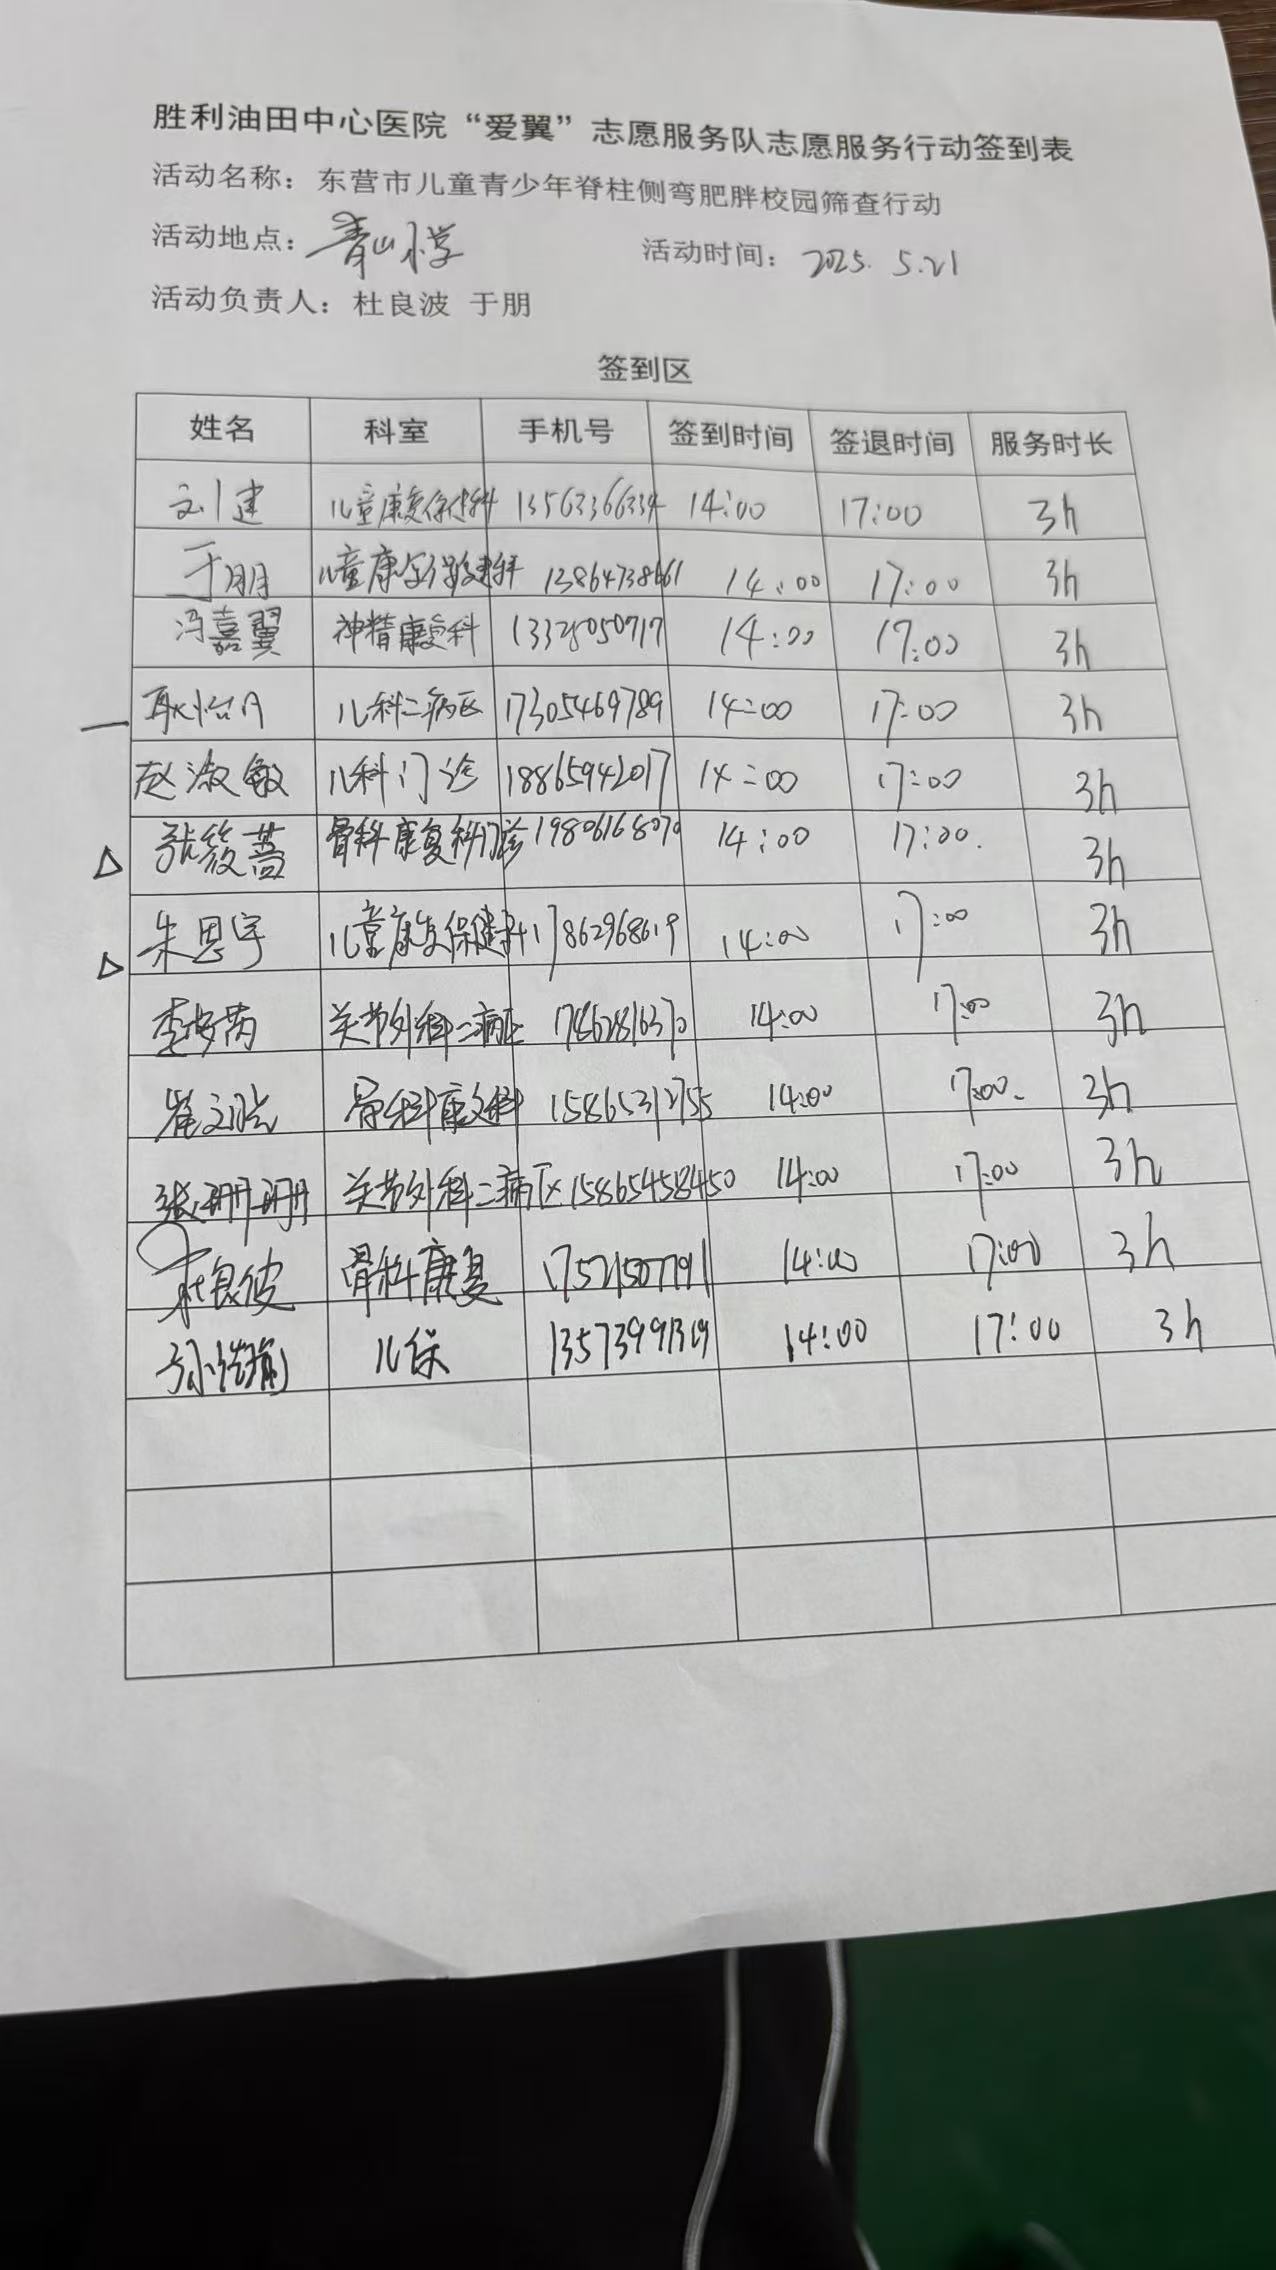 胜利油田中心医院“爱翼”志愿服务队志愿服务行动签到表
活动名称：东营市儿童青少年脊柱侧弯肥胖校园筛查行动
活动地点：青山小学 活动时间：2025.5.21
活动负责人：杜良波 于朋
签到区
姓名 科室 手机号 签到时间 签退时间 服务时长
刘建 儿童康复保健科 13563366334 14:00 17:00 3h
于朋 儿童康复保健科 13864738661 14:00 17:00 3h
冯嘉翼 神精康复科 13325050717 14:00 17:00 3h
耿怡月 儿科二病区 17305469789 14:00 17:00 3h
赵淑敏 儿科门诊 18865942017 14:00 17:00 3h
张筱蔷 骨科康复科门诊 19806168070 14:00 17:00. 3h
朱恩宇 儿童康复保健科 17862968619 14:00 17:00 3h
李梦芮 关节外科二病区 17862816370 14:00 17:00 3h
崔文 骨科康复科 15865312755 14:00 17:00. 3h
张珊珊 关节外科二病区 15865458450 14:00 17:00 3h
杜良波 骨科康复 17521507791 14:00 17:00 3h
孙 儿保 13573991319 14:00 17:00 3h